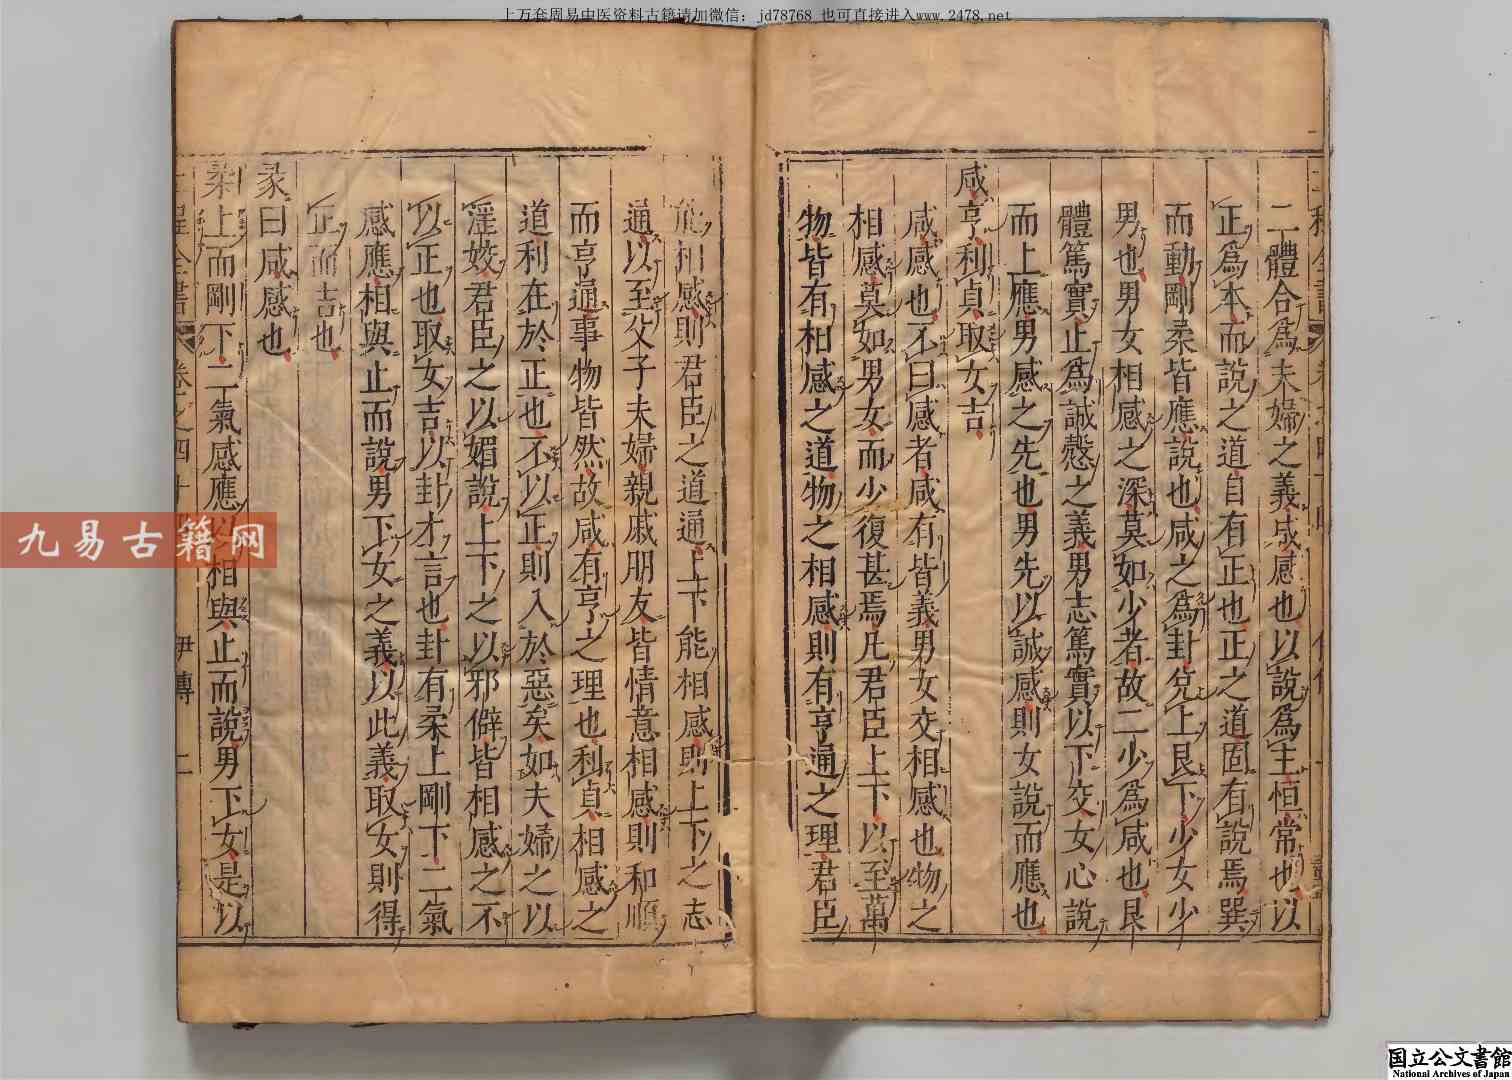 上万套周易中医资料古籍请加微信: jd78768 也可直接进入www.2478.net
二體合爲夫婦之義咸感也以說爲主恒常也以
正爲本而說之道自有正也正之道固有說焉巽
而動剛柔皆應說也咸之爲卦兌上艮下少女少
男也男女相感之深莫如少者故二少爲咸也艮
體篤實止爲誠慤之義男志篤實以下交女心說
而上應男感之先也男先以誠感則女說而應也
咸亨利貞取女吉
咸感也不曰感者咸有皆義男女交相感也物之
相感莫如男女而少復甚焉凡君臣上下以至萬
物皆有相感之道物之相感則有亨通之理君臣
能相感則君臣之道通上下能相感則上下之志
通以至父子夫婦親戚朋友皆情意相感則和順
而亨通事物皆然故咸有亨之理也利貞相感之
道利在於正也不以正則入於惡矣如夫婦之以
淫姣君臣之以媚說上下之以邪僻皆相感之不
以正也取女吉以卦才言也卦有柔上剛下二氣
感應相與止而說男下女之義以此義取女則得
正而吉也
彖曰咸感也
柔上而剛下二氣感應以相與止而說男下女是以
全書 卷之四十 伊傳 二
九易古籍网
国立公文書館
National Archives of Japan